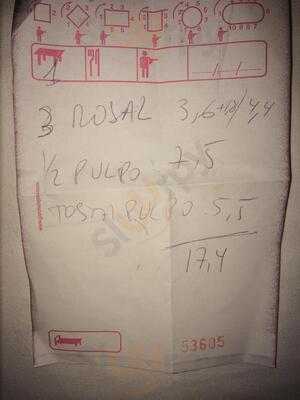 1
3 ROSAL 3,6 4,4
1/2 PULPO 7,5
TOSTA PULPO 5,5
17,4
53605